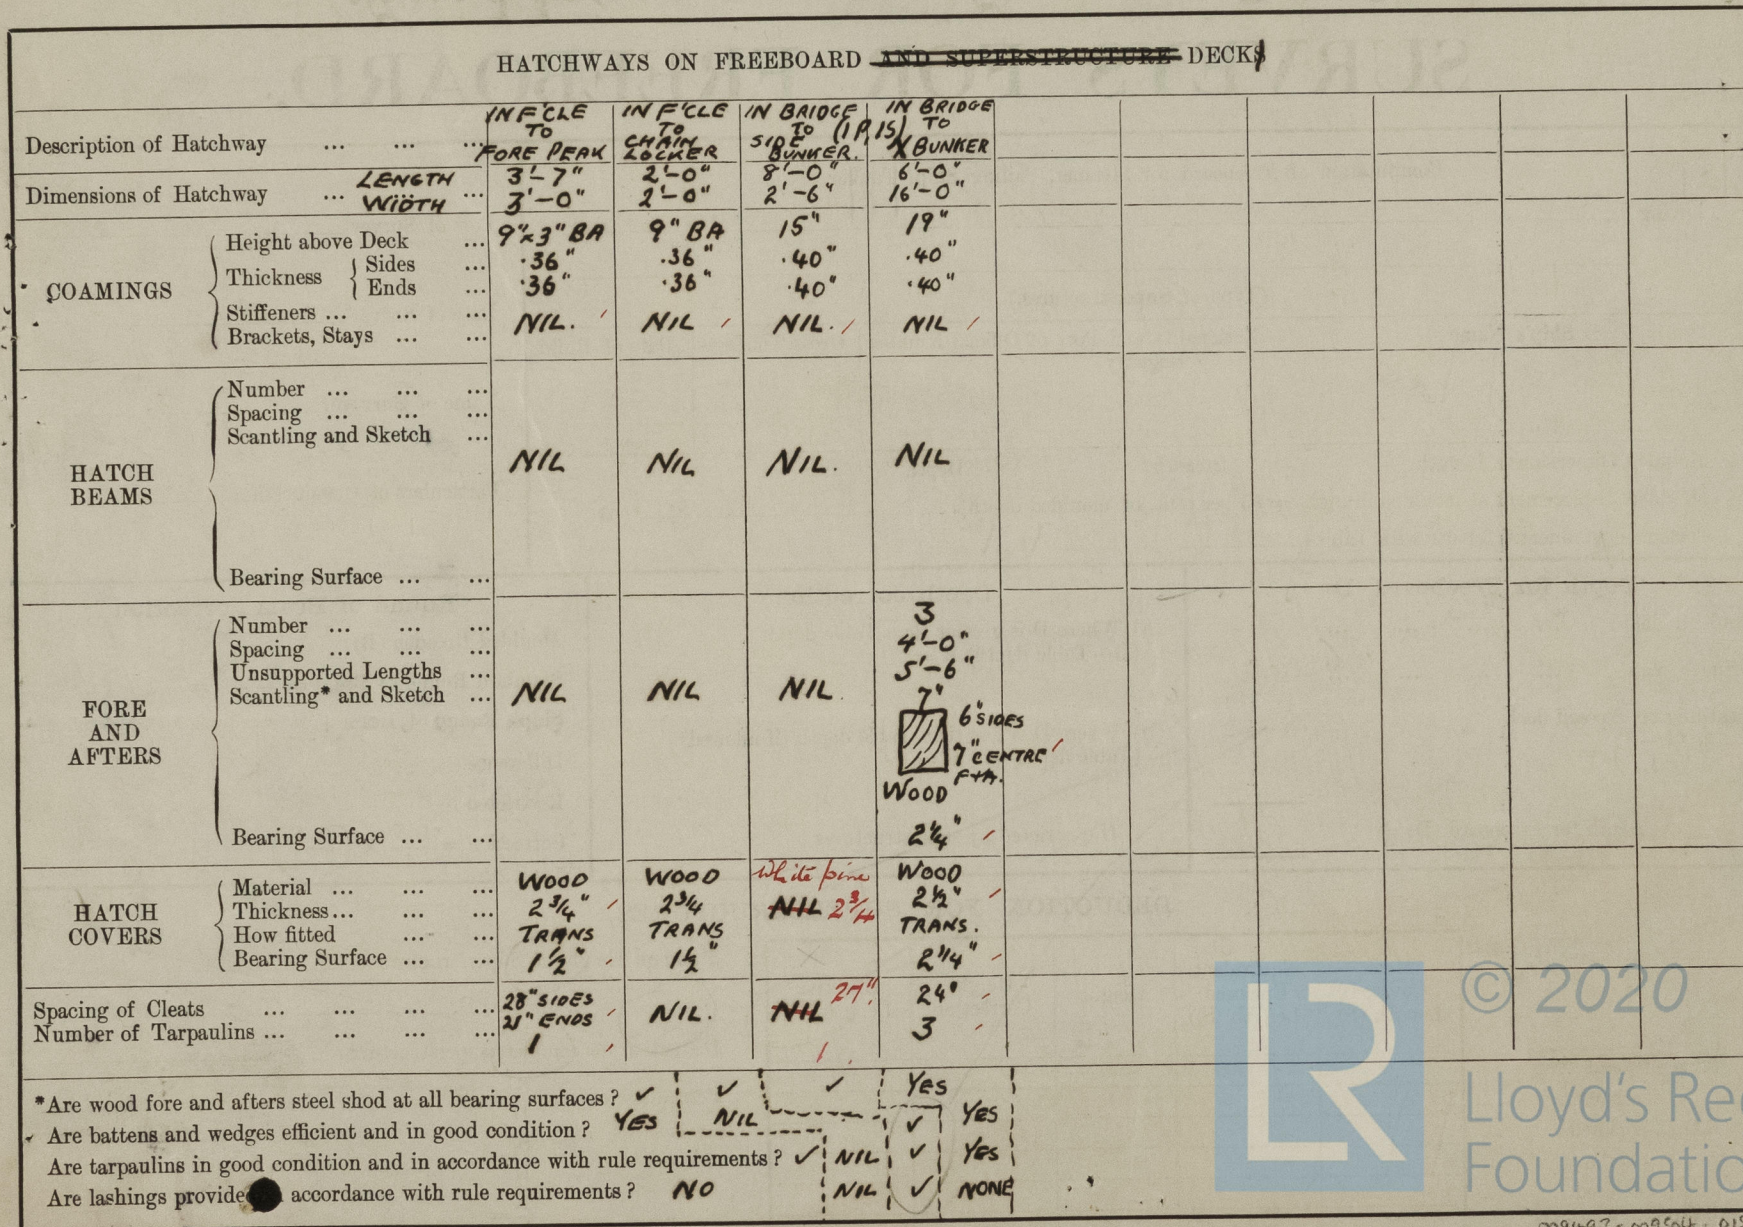 HATCHWAYS ON FREEBOARD AND SUPERSTRUCTURE DECKS
IN F'CLE TO FORE PEAK
IN F'CLE TO CHAIN LOCKER
IN BRIDGE TO (1P, 1S) SIDE BUNKER.
IN BRIDGE TO X BUNKER
Description of Hatchway ... ... ...
Dimensions of Hatchway ... LENGTH ... 3'-7" 2'-0" 8'-0" 6'-0"
WIDTH 3'-0" 2'-0" 2'-6" 16'-0"
COAMINGS
Height above Deck ... 9"x3" BA 9" BA 15" 19"
Thickness Sides ... .36" .36" .40" .40"
Ends ... .36" .36" .40" .40"
Stiffeners ... ... ...
Brackets, Stays ... ... NIL. NIL NIL. NIL
HATCH BEAMS
Number ... ... ...
Spacing ... ... ...
Scantling and Sketch ...
NIL NIL NIL. NIL
Bearing Surface ... ...
FORE AND AFTERS
Number ... ... ... 3
Spacing ... ... ... 4'-0"
Unsupported Lengths ... 5'-6"
Scantling* and Sketch ... NIL NIL NIL 7"
6" SIDES
7" CENTRE
F+A.
WOOD
Bearing Surface ... ... 2 1/4"
HATCH COVERS
Material ... ... ... WOOD WOOD White pine WOOD
Thickness... ... ... 2 3/4" 2 3/4 NIL 2 3/4 2 1/2"
How fitted ... ... TRANS TRANS TRANS.
Bearing Surface ... ... 1 1/2" 1 1/2" 2 1/4"
Spacing of Cleats ... ... ... ... 28" SIDES 21" ENDS NIL. NIL 27" 24"
Number of Tarpaulins ... ... ... ... 1 1 3
*Are wood fore and afters steel shod at all bearing surfaces? ✓ ✓ ✓ YES
Are battens and wedges efficient and in good condition? YES NIL ✓ YES
Are tarpaulins in good condition and in accordance with rule requirements? ✓ NIL ✓ YES
Are lashings provide accordance with rule requirements? NO NIL ✓ NONE
© 2020
LR
Lloyd's Re
Foundatio